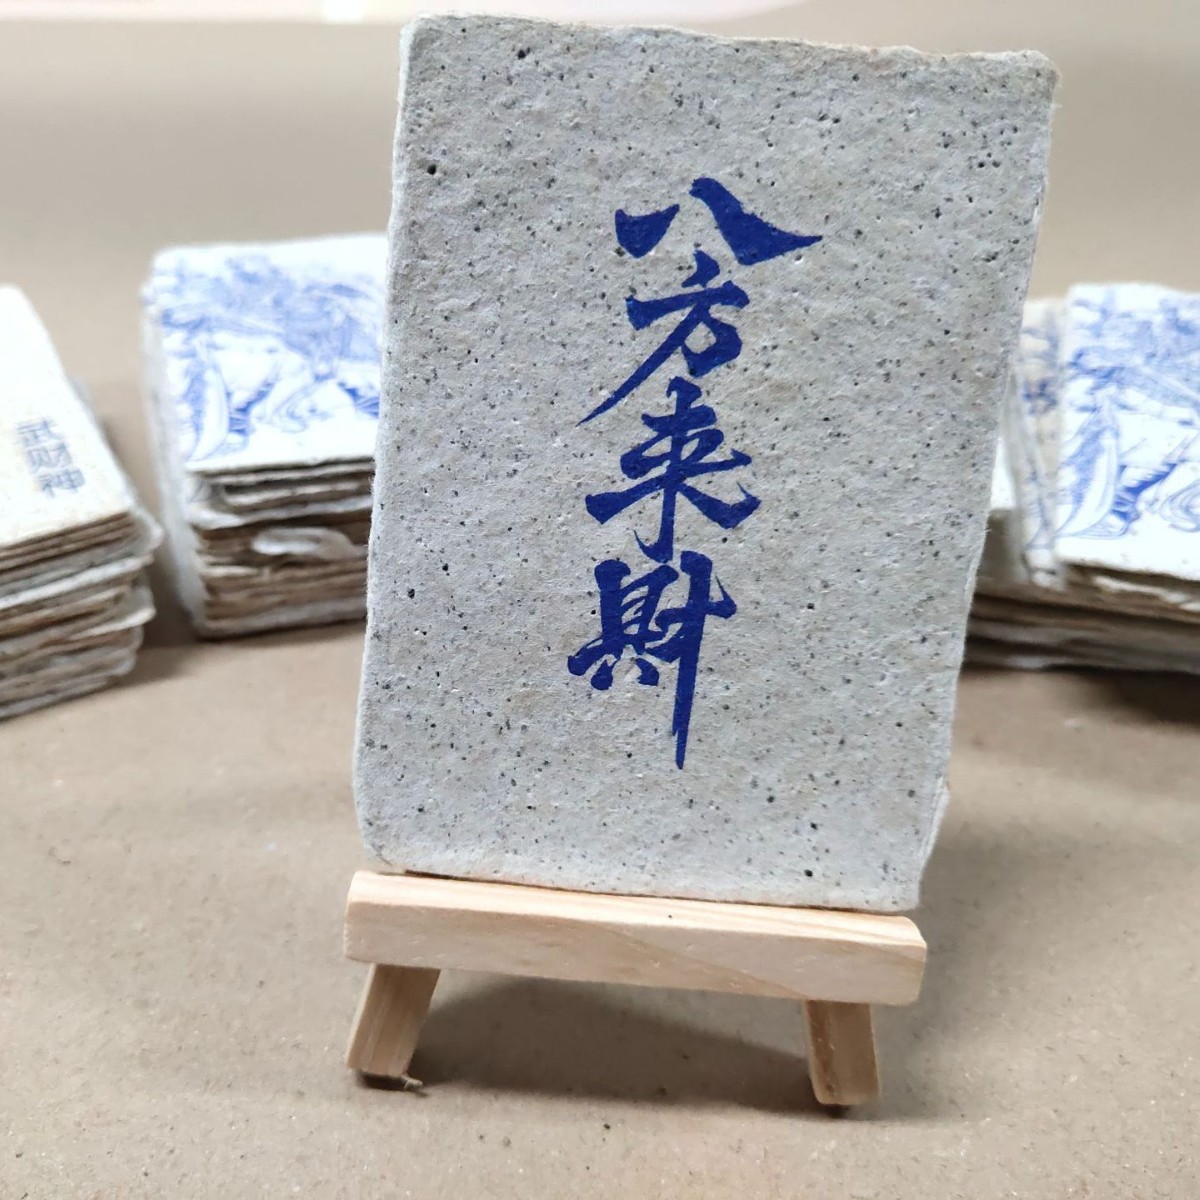 八方来财
武财神